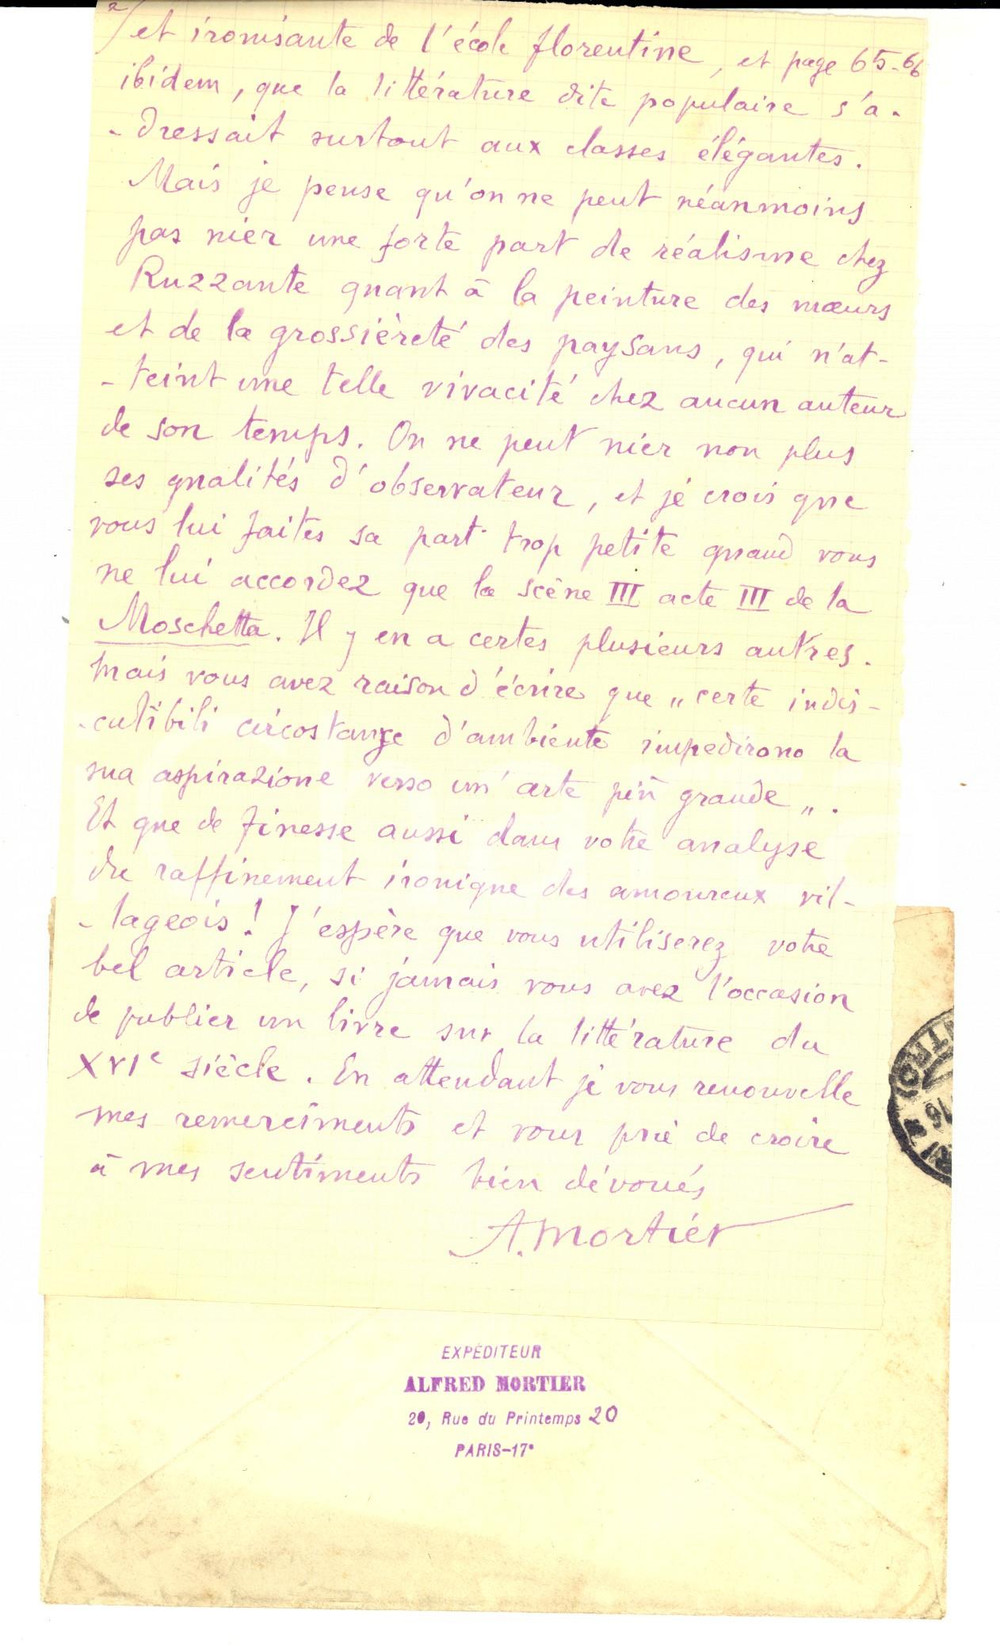 2/ et ironisante de l'école florentine, et page 65-66
ibidem, que la littérature dite populaire s'a-
-dressait surtout aux classes élégantes.
Mais je pense qu'on ne peut néanmoins
pas nier une forte part de réalisme chez
Ruzzante quant à la peinture des mœurs
et de la grossièreté des paysans, qui n'at-
-teint une telle vivacité chez aucun auteur
de son temps. On ne peut nier non plus
ses qualités d'observateur, et je crois que
vous lui faites sa part trop petite quand vous
ne lui accordez que la scène III acte III de la
Moschetta. Il y en a certes plusieurs autres.
Mais vous avez raison d'écrire que „certe indis-
-cutibili circostanze d'ambiente impedirono la
sua aspirazione verso un'arte più grande„.
Et que de finesse aussi dans votre analyse
du raffinement ironique des amoureux vil-
-lageois! J'espère que vous utiliserez votre
bel article, si jamais vous avez l'occasion
de publier un livre sur la littérature du
XVIe siècle. En attendant je vous renouvelle
mes remerciments et vous prie de croire
à mes sentiments bien dévoués
A. Mortier
EXPÉDITEUR
ALFRED MORTIER
20, Rue du Printemps 20
PARIS-17e